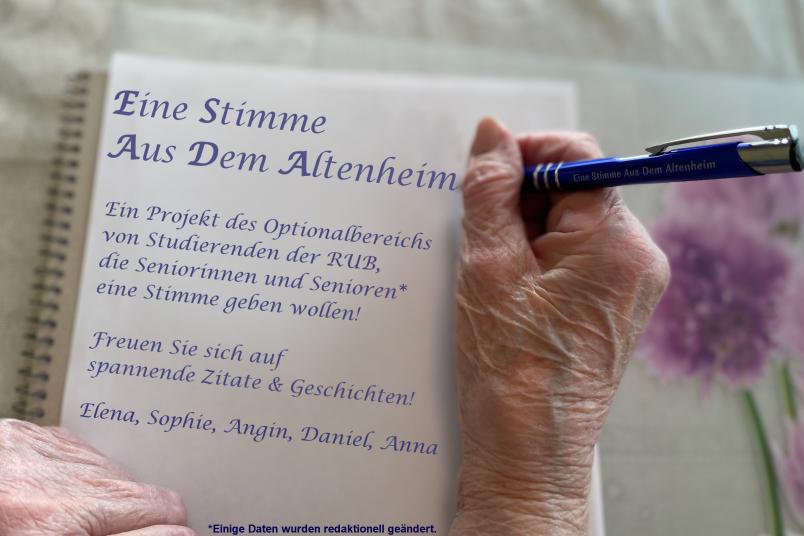 Eine Stimme
Aus Dem Altenheim
Eine Stimme Aus Dem Altenheim
Ein Projekt des Optionalbereichs
von Studierenden der RUB,
die Seniorinnen und Senioren*
eine Stimme geben wollen!
Freuen Sie sich auf
spannende Zitate & Geschichten!
Elena, Sophie, Angin, Daniel, Anna
*Einige Daten wurden redaktionell geändert.